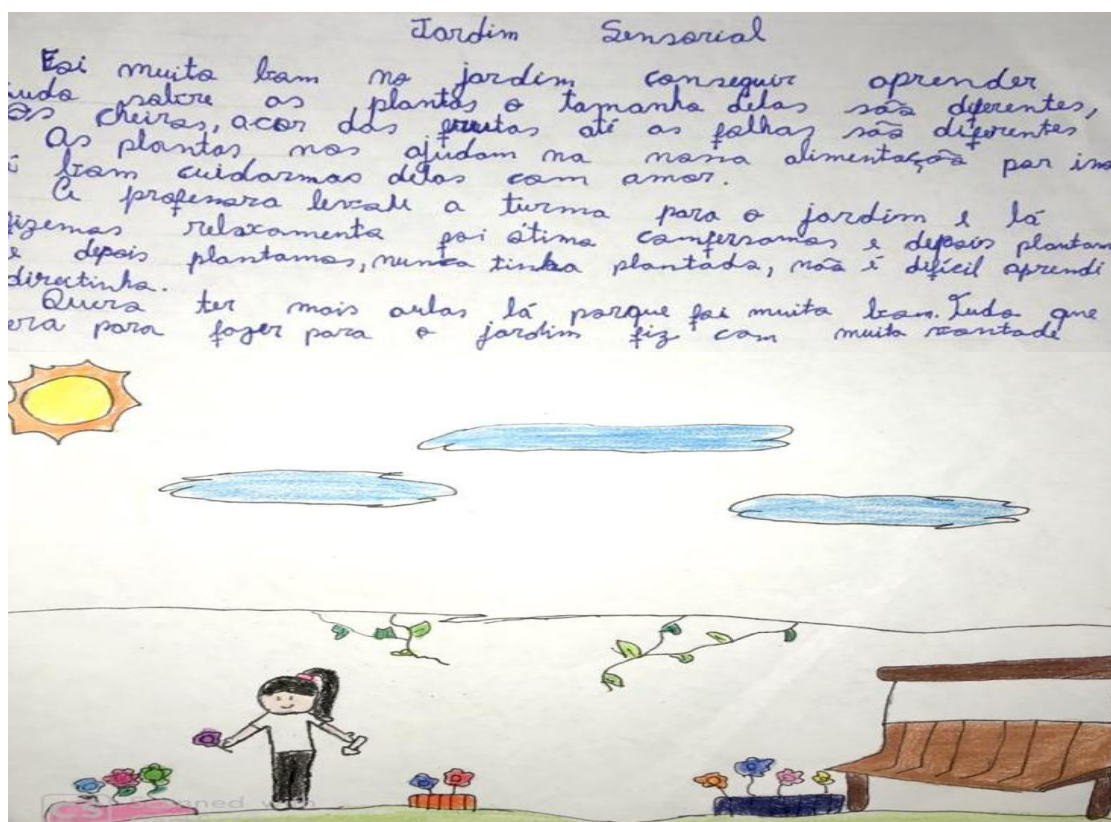 Jardim Sensorial
Foi muito bom no jardim conseguir aprender
tudo sobre as plantas o tamanho delas são diferentes,
os cheiros, a cor das frutas até as folhas são diferentes
As plantas nos ajudam na nossa alimentação por isso
é bom cuidarmos delas com amor.
A professora levou a turma para o jardim e lá
fizemos relaxamento foi ótimo comfersamos e depois plantam
e depois plantamos, nunca tinha plantado, não é difícil aprendi
direitinho.
Quero ter mais aulas lá porque foi muito bom. Tudo que
era para fazer para o jardim fiz com muita vontade
CS